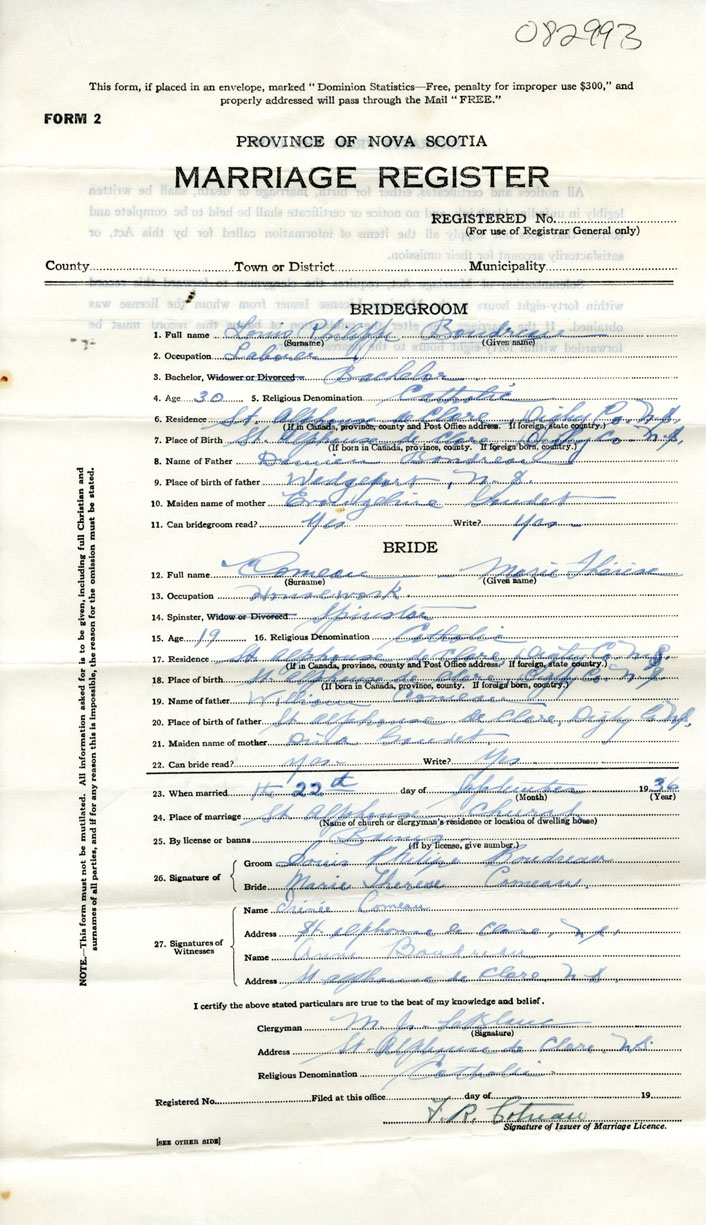 082993
This form, if placed in an envelope, marked "Dominion Statistics—Free, penalty for improper use $300," and
properly addressed will pass through the Mail "FREE."
FORM 2
PROVINCE OF NOVA SCOTIA
MARRIAGE REGISTER
REGISTERED No.
(For use of Registrar General only)
County Town or District Municipality
BRIDEGROOM
1. Full name Louis Philippe Boudreau
(Surname) (Given name)
2. Occupation Laborer
3. Bachelor, Widower or Divorced Bachelor
4. Age 30 5. Religious Denomination Catholic
6. Residence St. Alphonse de Clare, Digby Co. N.S.
(If in Canada, province, county and Post Office address. If foreign, state country.)
7. Place of Birth St. Alphonse de Clare Digby Co N.S.
(If born in Canada, province, county. If foreign born, country.)
8. Name of Father Damien Boudreau
9. Place of birth of father Wedgeport, N.S.
10. Maiden name of mother Evangeline Gaudet
11. Can bridegroom read? Yes Write? Yes
BRIDE
12. Full name Comeau Marie Thérèse
(Surname) (Given name)
13. Occupation Housework
14. Spinster, Widow or Divorced Spinster
15. Age 19 16. Religious Denomination Catholic
17. Residence St Alphonse de Clare Digby Co N.S.
(If in Canada, province, county and Post Office address. If foreign, state country.)
18. Place of birth St Alphonse de Clare, Digby Co N.S.
(If born in Canada, province, county. If foreign born, country.)
19. Name of father William Comeau
20. Place of birth of father St Alphonse de Clare, Digby Co N.S.
21. Maiden name of mother Gaudet
22. Can bride read? Yes Write? Yes
23. When married 22d day of September 1936
(Month) (Year)
24. Place of marriage St. Alphonse Church
(Name of church or clergyman's residence or location of dwelling house)
25. By license or banns Banns
(If by license, give number.)
26. Signature of
Groom Louis Philipe Boudreau
Bride Marie Therese Comeau
27. Signatures of Witnesses
Name Comeau
Address St. alphonse de Clare, N.S.
Name Anne Boudreau
Address St alphonse de Clare N.S.
I certify the above stated particulars are true to the best of my knowledge and belief.
Clergyman M. J. LeBlanc
(Signature)
Address St. Alphonse de Clare, N.S.
Religious Denomination Catholic
Registered No. Filed at this office day of 19
F. R.
Signature of Issuer of Marriage Licence.
[SEE OTHER SIDE]
NOTE.—This form must not be mutilated. All information asked for is to be given, including full Christian and
surnames of all parties, and if for any reason this is impossible, the reason for the omission must be stated.